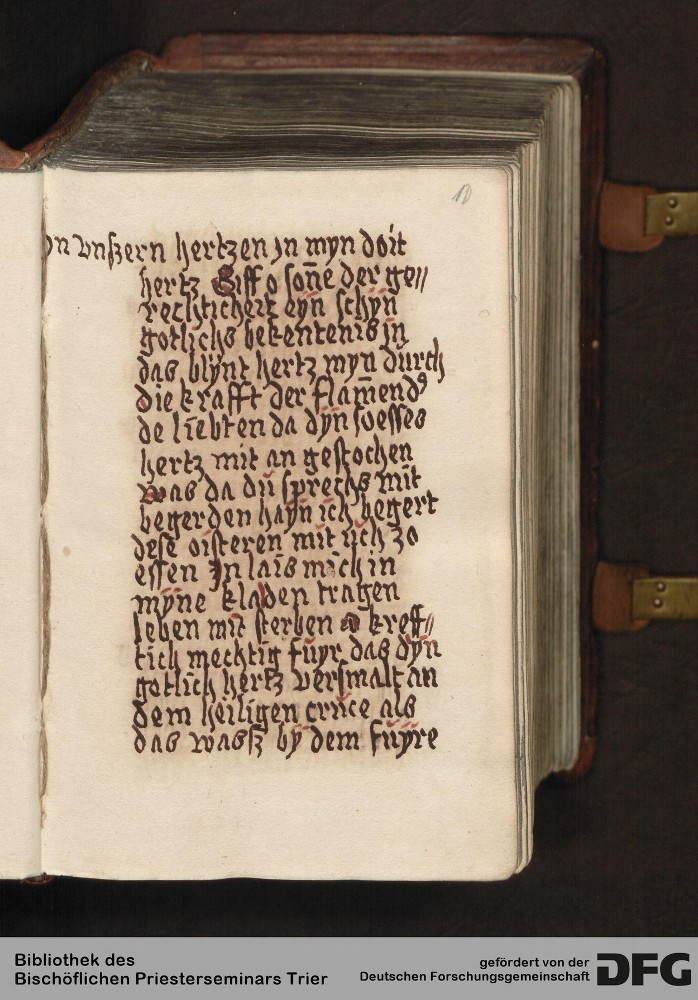 10
jn vnßern hertzen jn myn doit
hertz Giff o sone̅ der ge//
rechticheit eyn schyn
gotlichs bekentenis in
das blynt hertz myn durch
die krafft der flame̅nd⁹
de liebten da dyn soesses
hertz mit an gestochen
was da du sprechs mit
begerden hayn ich begert
dese oisteren mit uch zo
essen Jn lais mich in
myne kladen tragen
leben mit sterben o kreff//
tich mechtig fuyr das dyn
gotlich hertz versmalt an
dem heiligen cruce als
das wasß by dem fuyre
Bibliothek des
Bischöflichen Priesterseminars Trier
gefördert von der
Deutschen Forschungsgemeinschaft
DFG